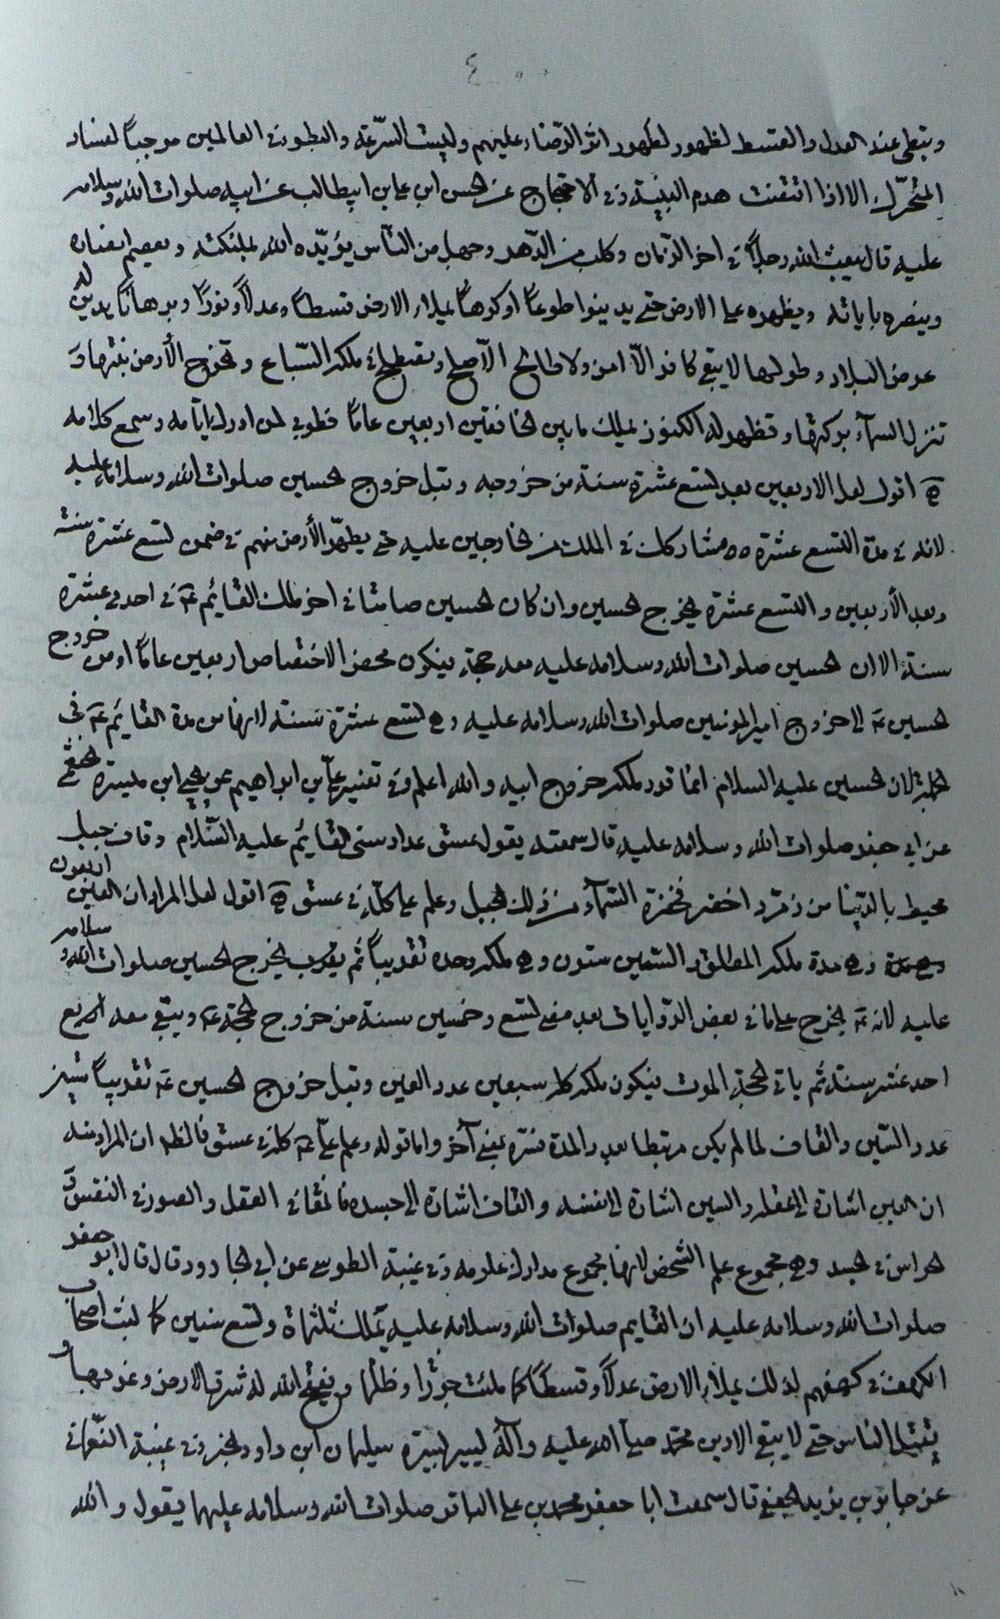 وتبطى عند العدل والقسط لظهور لظهور اثر القضاء عليهم وليست السرعة والبطؤ في العالمين موجباً لفساد
المتحرك الا اذا اقتضت هدم البنية وفي الاحتجاج عن الحسن ابن علي ابن ابيطالب عن ابيه صلوات الله وسلامه
عليه قال يبعث الله رجلاً في اخر الزمان وكلب من الدهر وجهل من الناس يؤيده الله بملئكته ويعصم انصاره
وينصره باياته ويظهره على الارض حتى يدينوا طوعاً او كرهاً يملاء الارض قسطاً وعدلاً ونوراً وبرهاناً يدين له
عرض البلاد وطولها لا يبقى كافر الا امن ولا طالح الا صلح وتصطلح في ملكه السباع وتخرج الأرض نبتها و
تنزل السماء بركتها وتظهر له الكنوز يملك ما بين الخافقين اربعين عاماً فطوبى لمن ادرك ايامه وسمع كلامه
اقول لعل الاربعين بعد لتسع عشرة سنة من خروجه وقبل خروج الحسين صلوات الله وسلامه عليه
لانه في مدة التسع عشرة مشاركت في الملك من الخارجين عليه حتى يطهر الأرض منهم في ضمن لتسع عشرة سنة
وبعد الأربعين والتسع عشرة يخرج الحسين وان كان الحسين صامتا في اخر ملك القائم ع في احدى عشرة
سنة الا ان الحسين صلوات الله وسلامه عليه معه حجة فيكون محض الاختصاص اربعين عاماً او من خروج
الحسين ع الى خروج امير المؤمنين صلوات الله وسلامه عليه وهي لتسع عشرة سنة لانها من مدة القائم ع في
الجملة لان الحسين عليه السلام انما قور ملكه خروج ابيه والله اعلم وفي تفسير علي بن ابراهيم عن يحيى ابن ميسرة الخثعمي
عن ابي جعفر صلوات الله وسلامه عليه قال سمعته يقول عسق عداد سني القايم عليه السلام وقاف جبل
محيط بالدنيا من زمرد اخضر فخضرة السماء من ذلك الجبل وعلم علي كله في عسق اقول لعل المراد ان العين اربعون
وهي مدة ملكه المطلق والسين ستون وهي ملكه وحده تقريباً ثم يقرب لخروج الحسين صلوات الله وسلامه
عليه لانه ع يخرج على ما في بعض الروايات بعد مضي لتسع وخمسين سنة من خروج الحجة ع ويبقى معه
احد عشر سنة ثم ياتي الحجة الموت فيكون ملكه كله سبعين عدد العين وقبل خروج الحسين ع تقريباً ستين
عدد السين والقاف لما لم يكن مرتبطا بعدد المدة فسره بمعنى آخر واما قوله وعلم علي ع كله في عسق فالظه ان المراد منه
ان العين اشارة الى عقله والسين اشارة الى نفسه والقاف اشارة الى جسده فالمعاني في العقل والصور في النفس و
الحواس في الجسد وهي مجموع علم الشخص لانها مجموع مدارك علومه وفي غيبة الطوسي عن ابي الجارود قال قال ابو جعفر
صلوات الله وسلامه عليه ان القايم صلوات الله وسلامه عليه يملك ثلثمائة وتسع سنين كما لبث اصحاب
الكهف في كهفهم لذلك يملاء الارض عدلاً وقسطاً كما ملئت جوراً وظلماً ويفتح الله له شرق الارض وغربها و
يقتل الناس حتى لا يبقى الا دين محمد صلى الله عليه وآله ليسير بسيرة سليمان ابن داود الخبر وفي غيبة النعماني
عن جابر بن يزيد الجعفي قال سمعت ابا جعفر محمد بن علي الباقر صلوات الله وسلامه عليهما يقول والله